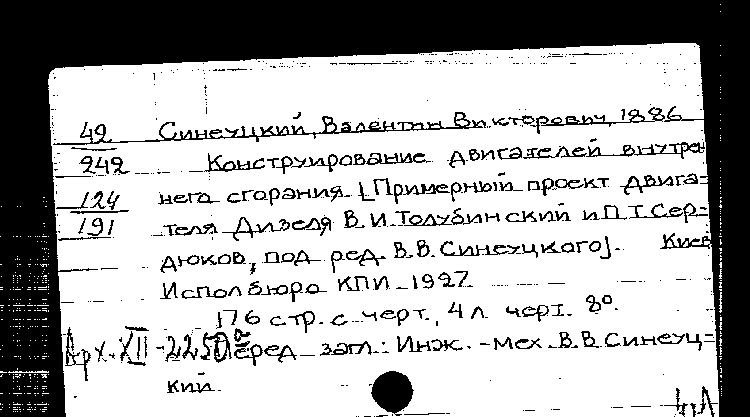 42 Синеуцкий, Валентин Викторович, 1886
242 Конструирование двигателей внутре
124 него сгорания. [Примерный проект двига=
191 теля Дизеля В.И. Толубинский и П.Т. Сер=
дюков, под ред. В.В. Синеуцкого]. Киев
Исполбюро КПИ 1927
176 стр. с черт., 4 л. черт. 8°.
Арх. XII - 2250 Перед загл.: Инж.-мех. В.В. Синеуц=
кий.